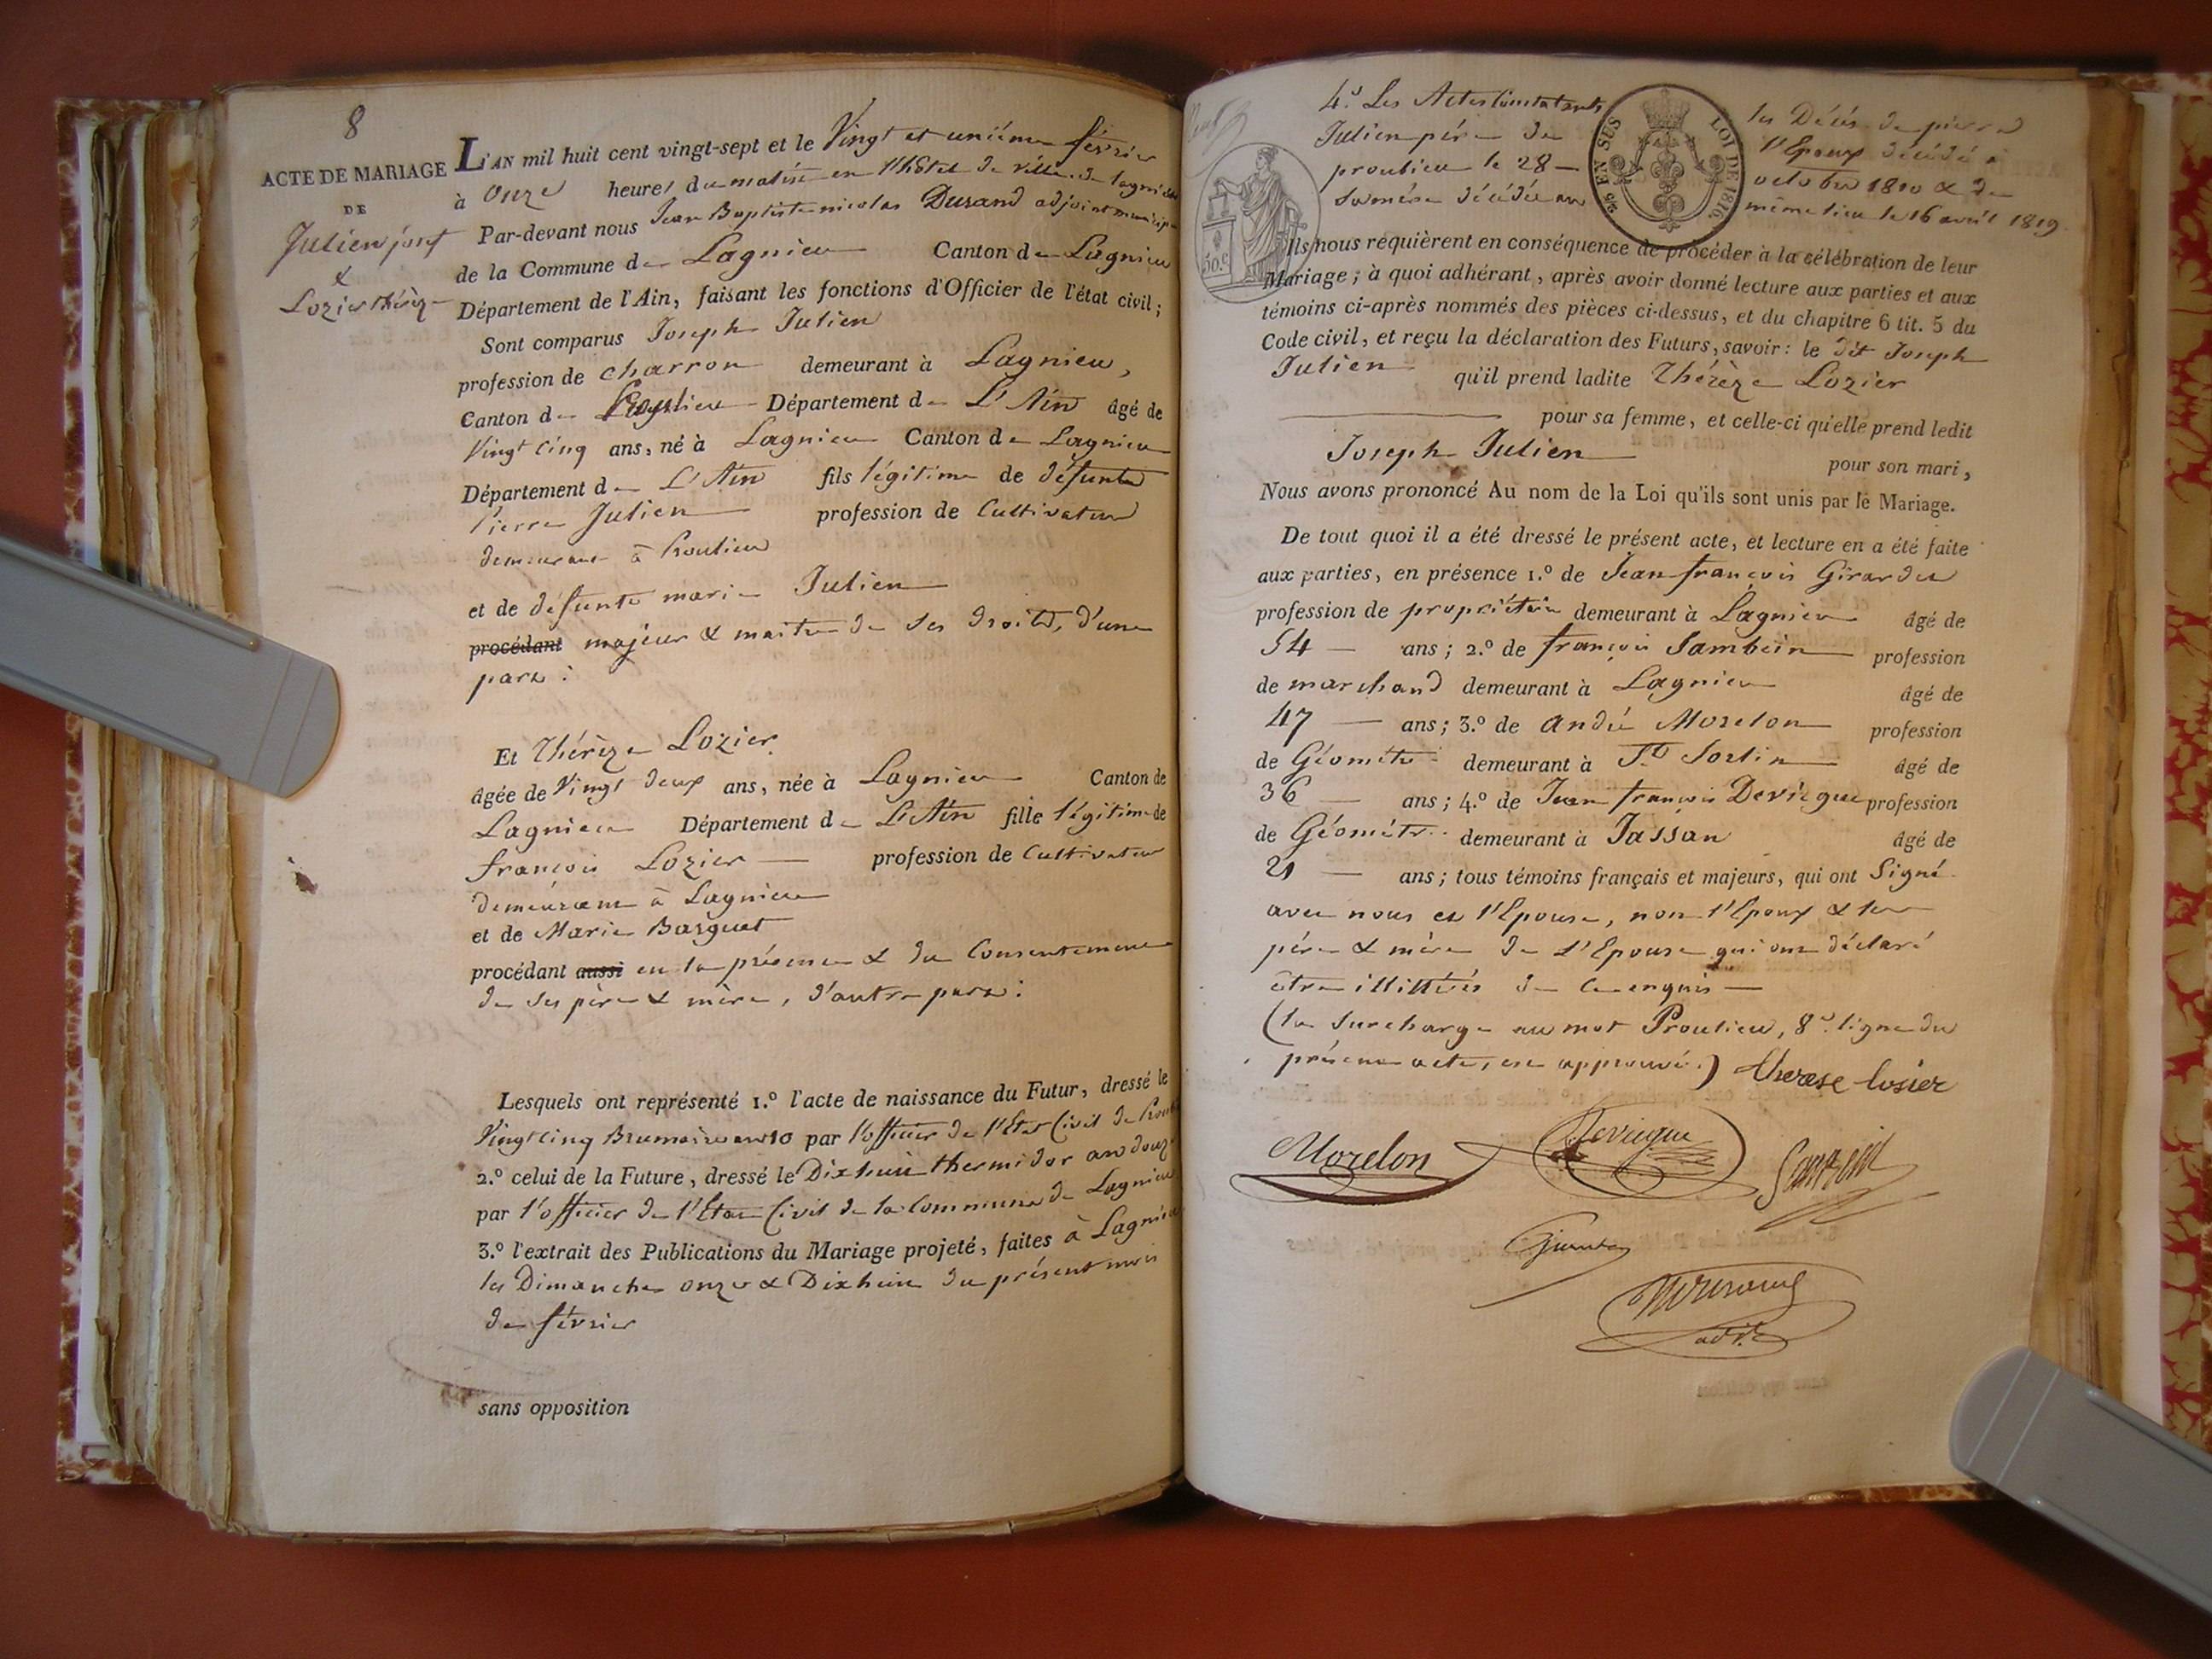 8
ACTE DE MARIAGE
DE
Julien josf
&
Lozier thérèz
L'AN mil huit cent vingt-sept et le Vingt et unième février
à onze heures du matin en l'hôtel de ville de lagnieu
Par-devant nous Jean Baptiste nicolas Durand adjoint municip
de la Commune de Lagnieu Canton de Lagnieu
Département de l'Ain, faisant les fonctions d'Officier de l'état civil;
Sont comparus Joseph Julien
profession de charron demeurant à Lagnieu,
Canton de Département de L'Ain âgé de
Vingt cinq ans, né à Lagnieu Canton de Lagnieu
Département de L'Ain fils légitime de défunts
Pierre Julien profession de Cultivateur
demeurant à Proulieu
et de défunte marie Julien
procédant majeur & maitre de ses droits, d'une
part :
Et Thérèze Lozier
âgée de Vingt deux ans, née à Lagnieu Canton de
Lagnieu Département de L'Ain fille légitime de
françois Lozier profession de Cultivateur
demeurant à Lagnieu
et de Marie Barquet
procédant aussi en la présence & du Consentement
de ses père & mère, d'autre part :
Lesquels ont représenté 1.º l'acte de naissance du Futur, dressé le
Vingt cinq Brumaire an 10 par l'officier de l'Etat Civil de
2.º celui de la Future, dressé le Dixhuit thermidor an douze
par l'officier de l'Etat Civil de la Commune de Lagnieu
3.º l'extrait des Publications du Mariage projeté, faites à Lagnieu
les Dimanches onze & Dixhuit du présent mois
de février
sans opposition
4.º Les Actes Constatants les Décès de pierre
Julien père de l'Epoux décédé à
proulieu le 28 octobre 1810 & de
sa mère décédée au même lieu le 16 avril 1819.
25 EN SES
LOI DE 1816
50.C
Ils nous requièrent en conséquence de procéder à la célébration de leur
Mariage; à quoi adhérant, après avoir donné lecture aux parties et aux
témoins ci-après nommés des pièces ci-dessus, et du chapitre 6 tit. 5 du
Code civil, et reçu la déclaration des Futurs, savoir: le dit Joseph
Julien qu'il prend ladite Thérèze Lozier
pour sa femme, et celle-ci qu'elle prend ledit
Joseph Julien pour son mari,
Nous avons prononcé Au nom de la Loi qu'ils sont unis par le Mariage.
De tout quoi il a été dressé le présent acte, et lecture en a été faite
aux parties, en présence 1.º de Jean françois Girardet
profession de propriétaire demeurant à Lagnieu âgé de
54 ans; 2.º de françois Sambein profession
de marchand demeurant à Lagnieu âgé de
47 ans; 3.º de André Morelon profession
de Géomètre demeurant à St Sorlin âgé de
36 ans; 4.º de Jean françois Devicque profession
de Géomètre demeurant à Jassan âgé de
21 ans; tous témoins français et majeurs, qui ont Signé
avec nous et l'Epouse, non l'Epoux & les
père & mère de L'Epouse qui ont déclaré
être illittérés de ce enquis
(la surcharge au mot Proulieu, 8e. ligne du
présent acte, est approuvée.) therese losier
Morelon Devicque Sambein
Girardet
adj.t